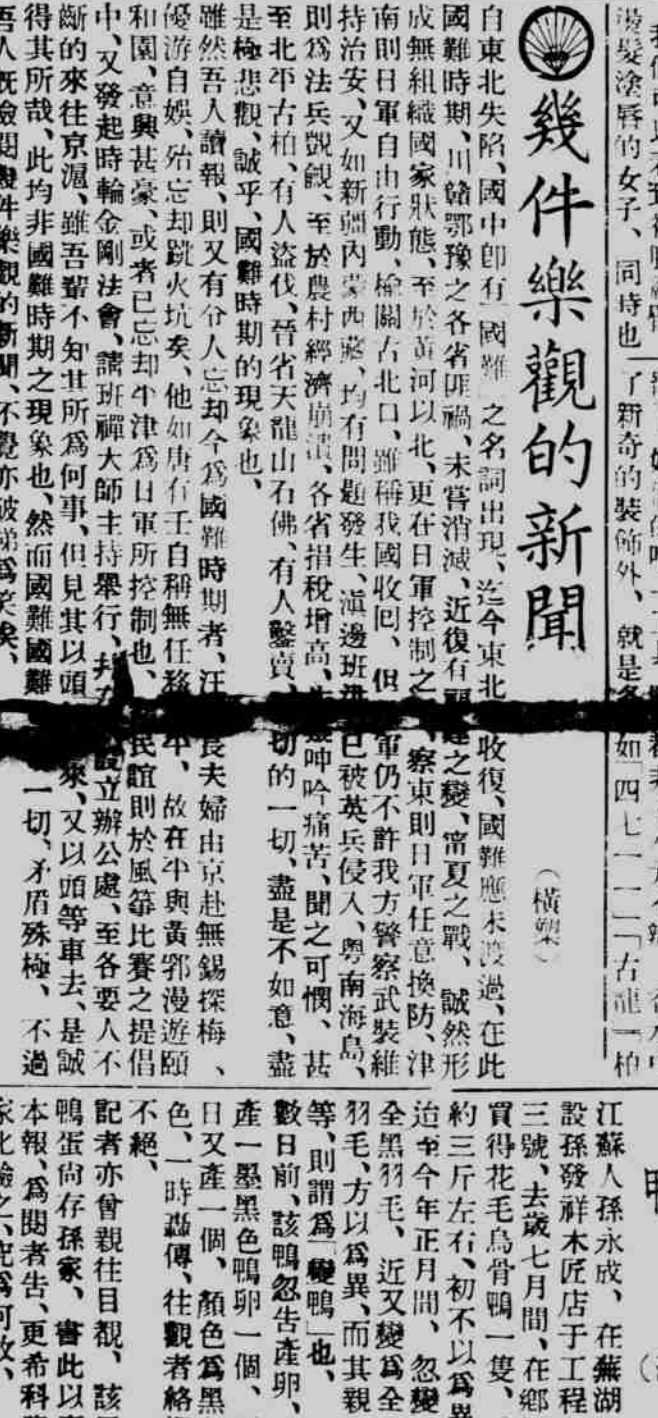 燙髮塗唇的女子、同時也
了新奇的裝飾外、就是
如「四七一一」「古龍」「柏
幾件樂觀的新聞
（橫槊）
自東北失陷、國中卽有「國難」之名詞出現、迄今東北
收復、國難應未渡過、在此
國難時期、川贛鄂豫之各省匪禍、未嘗消滅、近復有
之變、甯夏之戰、誠然形
成無組織國家狀態、至於黃河以北、更在日軍控制之
察東則日軍任意換防、津
南則日軍自由行動、榆關古北口、雖稱我國收回、但
軍仍不許我方警察武裝維
持治安、又如新疆內蒙西藏、均有問題發生、滇邊班洪已被英兵侵入、粵南海島、
則爲法兵覬覦、至於農村經濟崩潰、各省捐稅增高、
呻吟痛苦、聞之可憫、甚
至北平古柏、有人盜伐、晉省天龍山石佛、有人鑿賣、
切的一切、盡是不如意、盡
是極悲觀、誠乎、國難時期的現象也、
雖然吾人讀報、則又有分人忘却今爲國難時期者、汪
長夫婦由京赴無錫探梅、
優游自娛、殆忘却跳火坑矣、他如唐有壬自稱無任務
故在平與黃郛漫遊頤
和園、意興甚豪、或者已忘却平津爲日軍所控制也、
民誼則於風箏比賽之提倡
中、又發起時輪金剛法會、請班禪大師主持舉行、
設立辦公處、至各要人不
斷的來往京滬、雖吾輩不知其所爲何事、但見其以頭
來、又以頭等車去、是誠
得其所哉、此均非國難時期之現象也、然而國難國難
一切、矛盾殊極、不過
吾人旣檢閱幾件樂觀的新聞、不覺亦破涕爲笑矣、
江蘇人孫永成、在蕪湖
設孫發祥木匠店于工程
三號、去歲七月間、在鄉
買得花毛烏骨鴨一隻、
約三斤左右、初不以爲異
迨至今年正月間、忽變
全黑羽毛、近又變爲全
羽毛、方以爲異、而其親
等、則謂爲「變鴨」也、
數日前、該鴨忽吿產卵、
產一墨黑色鴨卵一個、
日又產一個、顏色爲黑
色、一時轟傳、往觀者絡
不絕、
記者亦曾親往目覩、該
鴨蛋尙存孫家、書此以
本報、爲閱者吿、更希科
家化驗之、究爲何故、